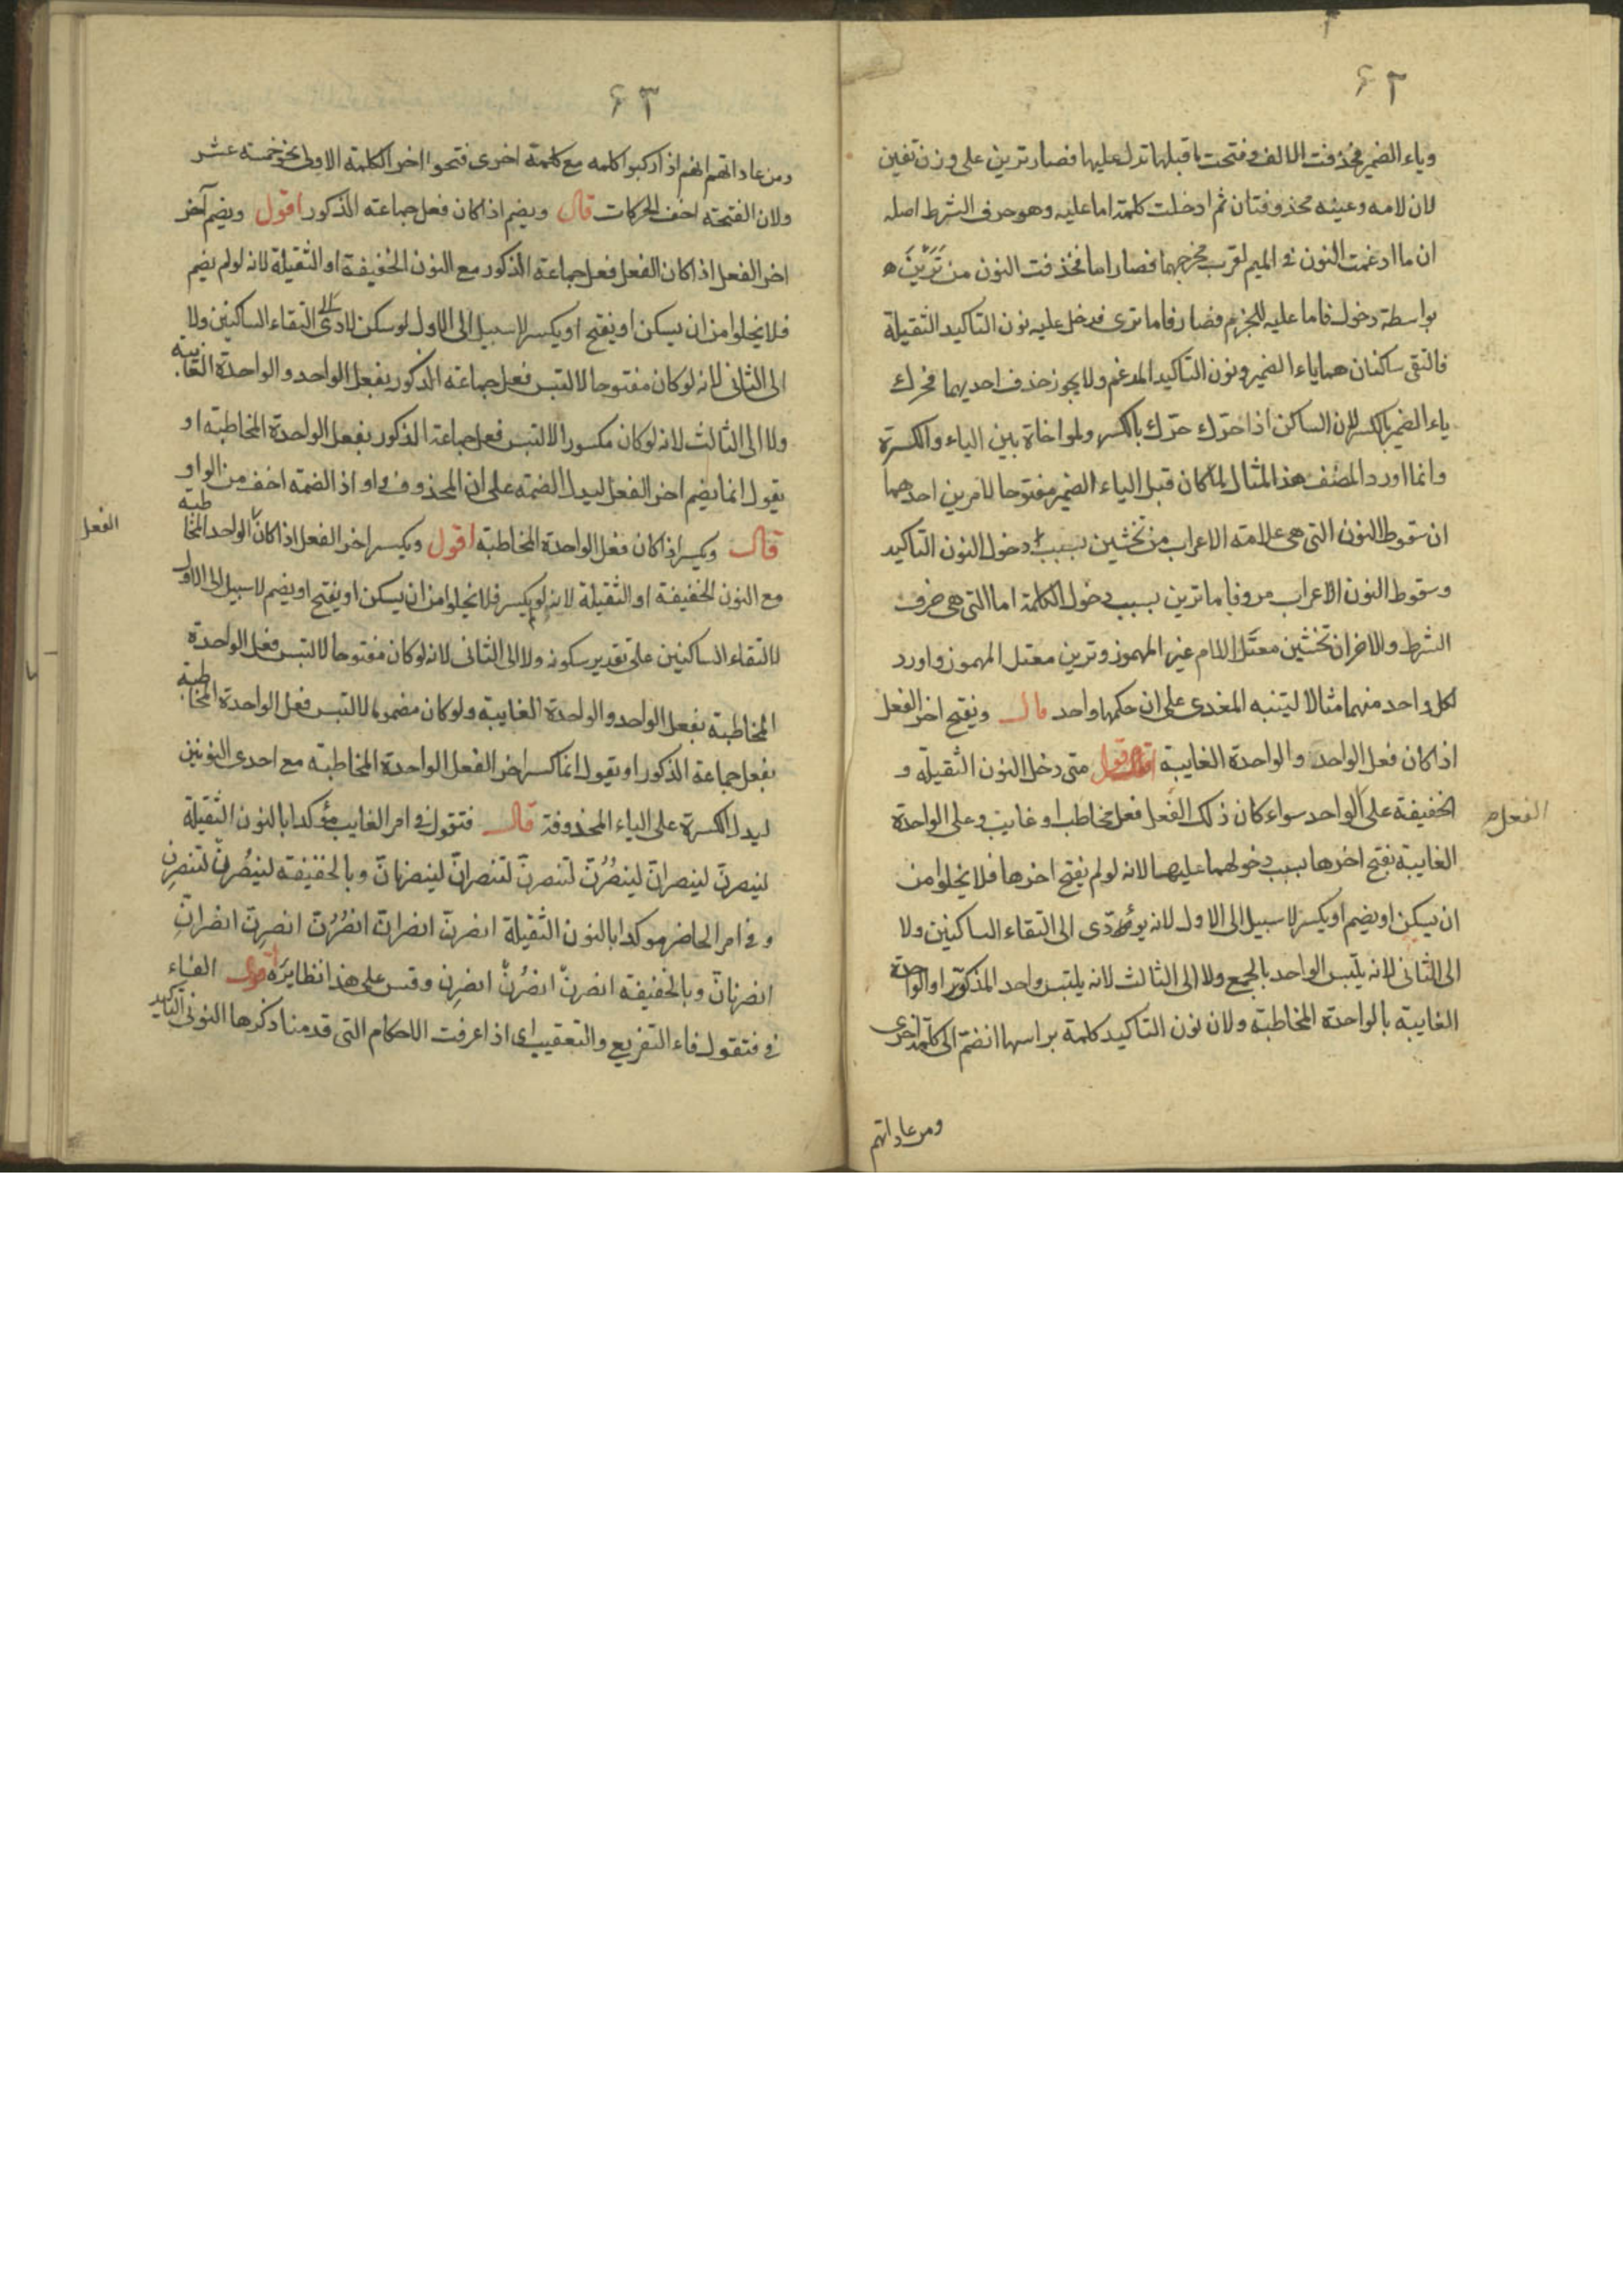 ٦٢
وياء الضمير فحذفت الالف وفتحت ما قبلها تدل عليها فصار ترين على وزن تفين
لان لامه وعينه محذوفتان ثم ادخلت كلمة اما عليه وهو حرف الشرط اصله
ان ما ادغمت النون في الميم لقرب مخرجهما فصار اما فحذفت النون من تَرَيْنَ
بواسطة دخول فاما عليه للجزم فصار فاما تري فدخل عليه نون التاكيد الثقيلة
فالتقى ساكنان هما ياء الضمير ونون التاكيد المدغم ولا يجوز حذف احديهما فحرك
ياء الضمير بالكسر لان الساكن اذا حرّك حرّك بالكسر ولمواخاة بين الياء والكسرة
وانما اورد المصنف هذا المثال لما كان قبل الياء الضمير مفتوحا لامرين احدهما
ان سقوط النون التي هي علامة الاعراب من تخشين بسبب دخول النون التاكيد
وسقوط النون الاعراب من وفاما ترين بسبب دخول الكلمة اما التي هي حرف
الشرط والاخر ان تخشين معتل اللام غير المهموز وترين معتل المهموز واورد
لكل واحد منهما مثالا ليتنبه المغدى على ان حكمها واحد قال ويفتح اخر الفعل
اذا كان فعل الواحد والواحدة الغايبة اقول متى دخل النون الثقيلة و
الخفيفة على الواحد سواء كان ذلك الفعل فعل مخاطب او غايب وعلى الواحدة
الفعل
الغايبة بفتح اخرها بسبب دخولهما عليهما لانه لو لم يفتح اخرها فلا يخلوا من
ان يسكن او يضم او يكسر لا سبيل الى الاول لانه يؤدّى الى التقاء الساكنين ولا
الى الثاني لانه يلتبس الواحد بالجمع ولا الى الثالث لانه يلتبس واحد المذكر او الواحدة
الغايبة بالواحدة المخاطبة ولان نون التاكيد كلمة براسها انضم الى كلمة اخرى
ومن عاداتهم
٦٣
ومن عاداتهم انهم اذا ركبوا كلمه مع كلمة اخرى فتحوا اخر الكلمة الاولى نحو خمسة عشر
ولان الفتحة اخف الحركات قال ويضم اذا كان فعل جماعة الذكور اقول ويضم آخر
اخر الفعل اذا كان الفعل فعل جماعة الذكور مع النون الخفيفة او الثقيلة لانه لو لم يضم
فلا يخلوا من ان يسكن او يفتح او يكسر لا سبيل الى الاول لو سكن لادى الى التقاء الساكنين ولا
الى الثاني لانه لو كان مفتوحا لالتبس فعل جماعة الذكور بفعل الواحد والواحدة الغايبة
ولا الى الثالث لانه لو كان مكسورا لالتبس فعل جماعة الذكور بفعل الواحدة المخاطبة او
يقول انما يضم اخر الفعل ليدل الضمة على ان المحذوف واو اذ الضمة اخف من الواو
قال ويكسر اذا كان فعل الواحدة المخاطبة اقول ويكسر اخر الفعل اذا كان الواحد المخاطبة
الفعل
مع النون الخفيفة او الثقيلة لانه لو لم يكسر فلا يخلوا من ان يسكن او يفتح او يضم لا سبيل الى الاول
لالتقاء الساكنين على تقدير سكونه ولا الى الثاني لانه لو كان مفتوحا لالتبس فعل الواحدة
المخاطبة بفعل الواحد والواحدة الغايبة ولو كان مضموما لالتبس فعل الواحدة المخاطبة
بفعل جماعة الذكور او يقول انما كسر اخر الفعل الواحدة المخاطبة مع احدى النونين
ليدل الكسرة على الياء المحذوفة قال فتقول في امر الغايب مؤكدا بالنون الثقيلة
لينصرنّ لينصرانّ لينصُرُنّ لتنصرنّ لتنصرانّ لينصرنانّ وبالخفيفة لينصُرنْ لتنصرن
وفي امر الحاضر موكدا بالنون الثقيلة انصرنّ انصرانّ انصُرُنّ انصرِنّ انصرانّ
انصرنانّ وبالخفيفة انصرنْ انصُرُنْ انصرِن وقس على هذا نظايره اقول الفاء
في فتقول فاء التفريع والتعقيب اى اذا عرفت الاحكام التي قدمنا ذكرها النوني التاكيد